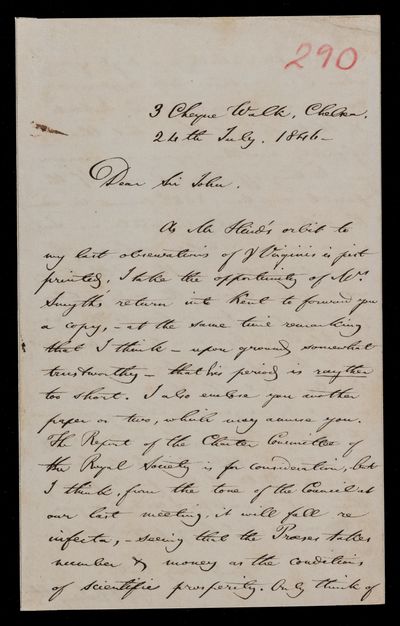 290
3 Cheyne Walk, Chelsea.
24th July. 1846 -
Dear Sir John.
As Mr Hind's orbit to
my last observations of γ Virginis is just
printed, I take the opportunity of Mrs.
Smyth's return into Kent to forward you
a copy, - at the same time remarking
that I think - upon grounds somewhat
trustworthy - that his period is rayther
too short. I also enclose you another
paper or two, which may amuse you.
The Report of the Charter Committee of
the Royal Society is for consideration, but
I think, from the tone of the Council at
our last meeting, it will fall re
infecta, - seeing that the Præses takes
number & money as the conditions
of scientific prosperity. Only think of